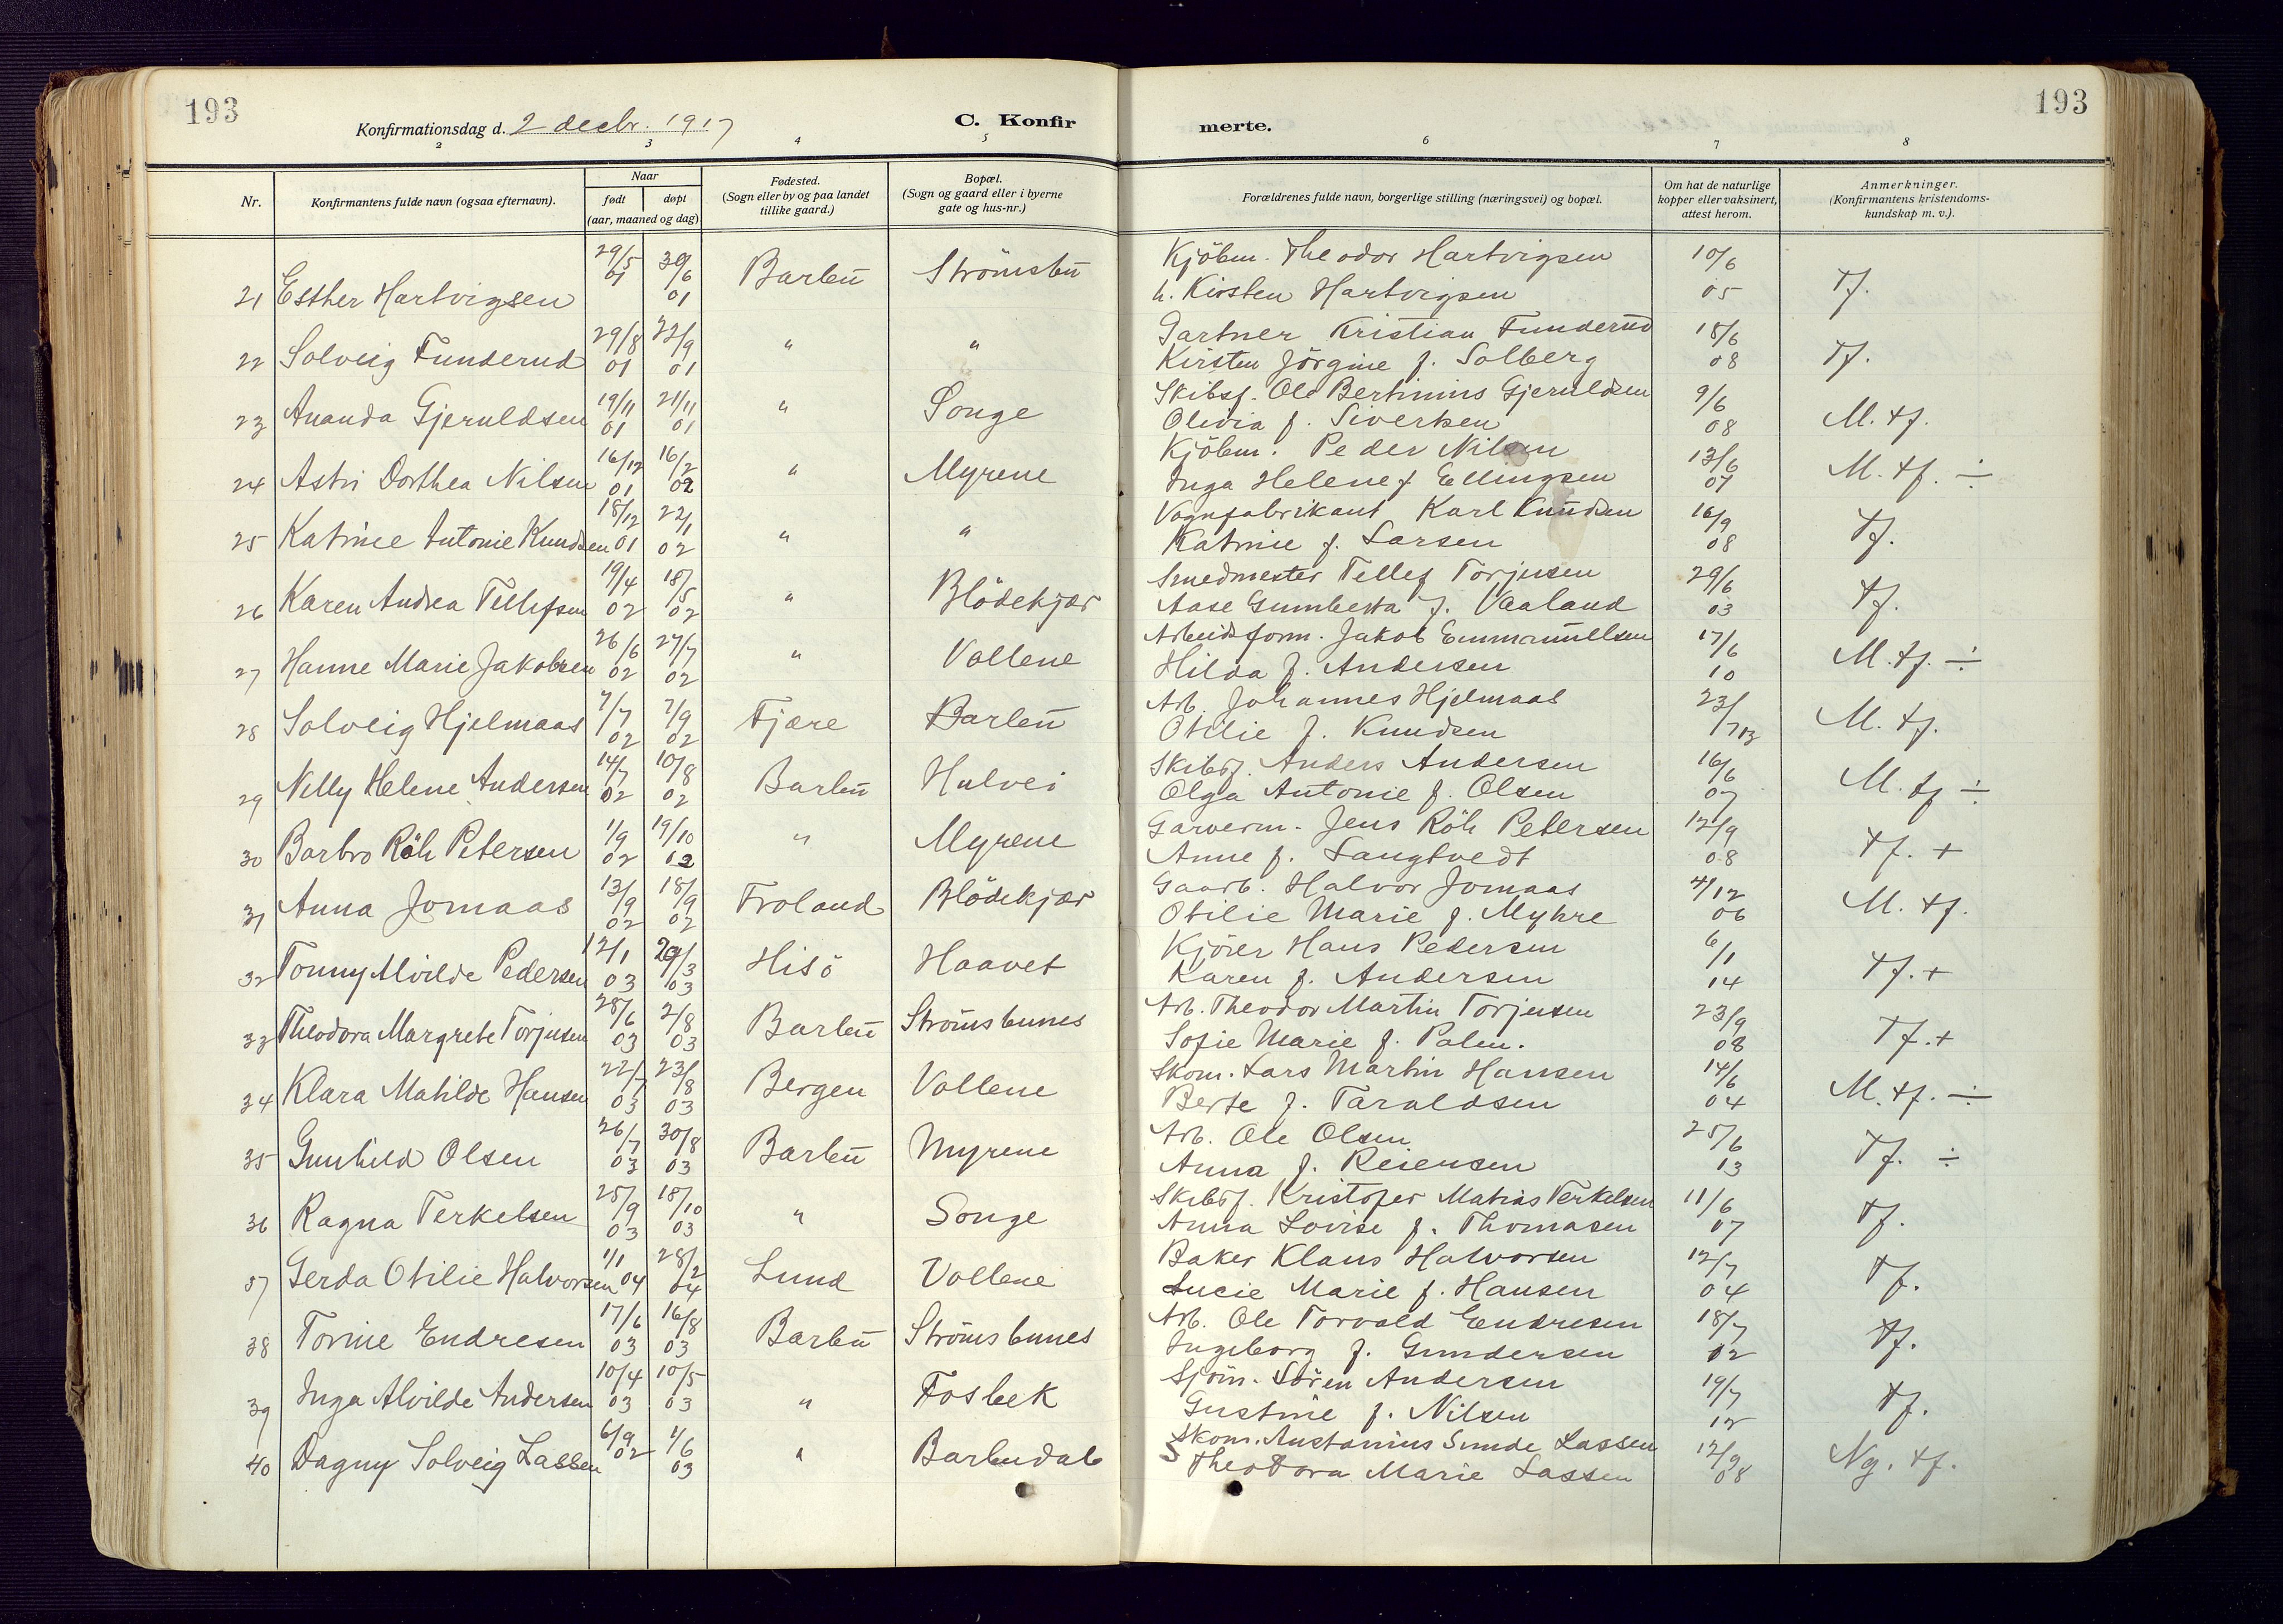 193
193
Konfirmationsdag d. 2 decbr. 1917
C. Konfirmerte.
2 3 4 5 6 7 8
Nr.
Konfirmantens fulde navn (ogsaa efternavn).
Naar
født døpt
(aar, maaned og dag)
Fødested.
(Sogn eller by og paa landet
tillike gaard.)
Bopæl.
(Sogn og gaard eller i byerne
gate og hus-nr.)
Forældrenes fulde navn, borgerlige stilling (næringsvei) og bopæl.
Om hat de naturlige
kopper eller vaksinert,
attest herom.
Anmerkninger.
(Konfirmantens kristendoms-
kundskap m. v.).
21 Esther Hartvigsen 29/5 01 30/6 01 Barbu Strömsbu Kjöbm. Theodor Hartvigsen 10/6 05 Tf.
h. Kirsten Hartvigsen
22 Solveig Funderud 29/8 01 22/9 01 " " Gartner Kristian Funderud 18/6 08 Tf.
Kirsten Jörgine f. Solberg
23 Ananda Gjeruldsen 19/11 01 21/11 01 " Songe Skibsf. Ole Bertinius Gjeruldsen 9/6 08 M. tf.
Olivia f. Sivertsen
24 Astri Dorthea Nilsen 16/12 01 16/2 02 " Myrene Kjöbm. Peder Nilsen 13/6 07 M. tf. ÷
Inga Helene f Ellingsen
25 Katrine Antonie Knudsen 18/12 01 22/1 02 " " Vognfabrikant Karl Knudsen 16/9 08 Tf.
Katrine f. Larsen
26 Karen Andrea Tellefsen 19/4 02 18/5 02 " Blödekjær Smedmester Tellef Torjusen 29/6 03 Tf.
Aase Gumberta f. Vaaland
27 Hanne Marie Jakobsen 26/6 02 27/7 02 " Vollene Arbeidsform. Jakob Emmanuellsen 17/6 10 M. tf. ÷
Hilda f. Andersen
28 Solveig Hjelmaas 7/7 02 7/9 02 Fjære Barbu Arb. Johannes Hjelmaas 23/7 13 M. tf.
Otilie f. Knudsen
29 Nelly Helene Andersen 14/7 02 10/8 02 Barbu Hulvei Skibsf. Anders Andersen 16/6 07 M. tf ÷
Olga Antonie f. Olsen
30 Barbro Röh Petersen 1/9 02 19/10 02 " Myrene Garverm. Jens Röh Petersen 12/9 08 Tf. +
Anne f. Langtvedt
31 Anna Jomaas 13/9 02 18/9 02 Froland Blödekjær Gaarb. Halvor Jomaas 4/12 06 M. tf.
Otilie Marie f. Myhre
32 Tonny Alvilde Pedersen 12/1 03 29/3 03 Hisö Haavet Kjörer Hans Pedersen 6/1 14 Tf. +
Karen f. Andersen
33 Theodora Margrete Torjusen 28/6 03 2/8 03 Barbu Strömsbunes Arb. Theodor Martin Torjusen 23/9 08 Tf. +
Sofie Marie f. Palm.
34 Klara Matilde Hansen 22/7 03 23/8 03 Bergen Vollene Skom. Lars Martin Hansen 14/6 04 M. tf. ÷
Berte f. Taraldsen
35 Gunhild Olsen 26/7 03 30/8 03 Barbu Myrene Arb. Ole Olsen 25/6 13 Tf. ÷
Anna f. Reiersen
36 Ragna Terkelsen 25/9 03 18/10 03 " Songe Skibsf. Kristofer Matias Terkelsen 11/6 07 Tf.
Anna Lovise f. Thomasen
37 Gerda Otilie Halvorsen 1/1 04 28/2 04 Lund Vollene Baker Klaus Halvorsen 12/7 04 Tf.
Lucie Marie f. Hansen
38 Torine Endresen 17/6 03 16/8 03 Barbu Strömsbunes Arb. Ole Torvald Endresen 18/7 02 Tf.
Ingeborg f. Gundersen
39 Inga Alvilde Andersen 10/4 03 10/5 03 " Fosbek Sjöm. Sören Andersen 19/7 12 Tf.
Gustine f. Nilsen
40 Dagny Solveig Lassen 6/9 02 1/6 03 " Barbudal Skom. Austanius Sunde Lassen 12/9 08 Ng. tf.
Theodora Marie Lassen